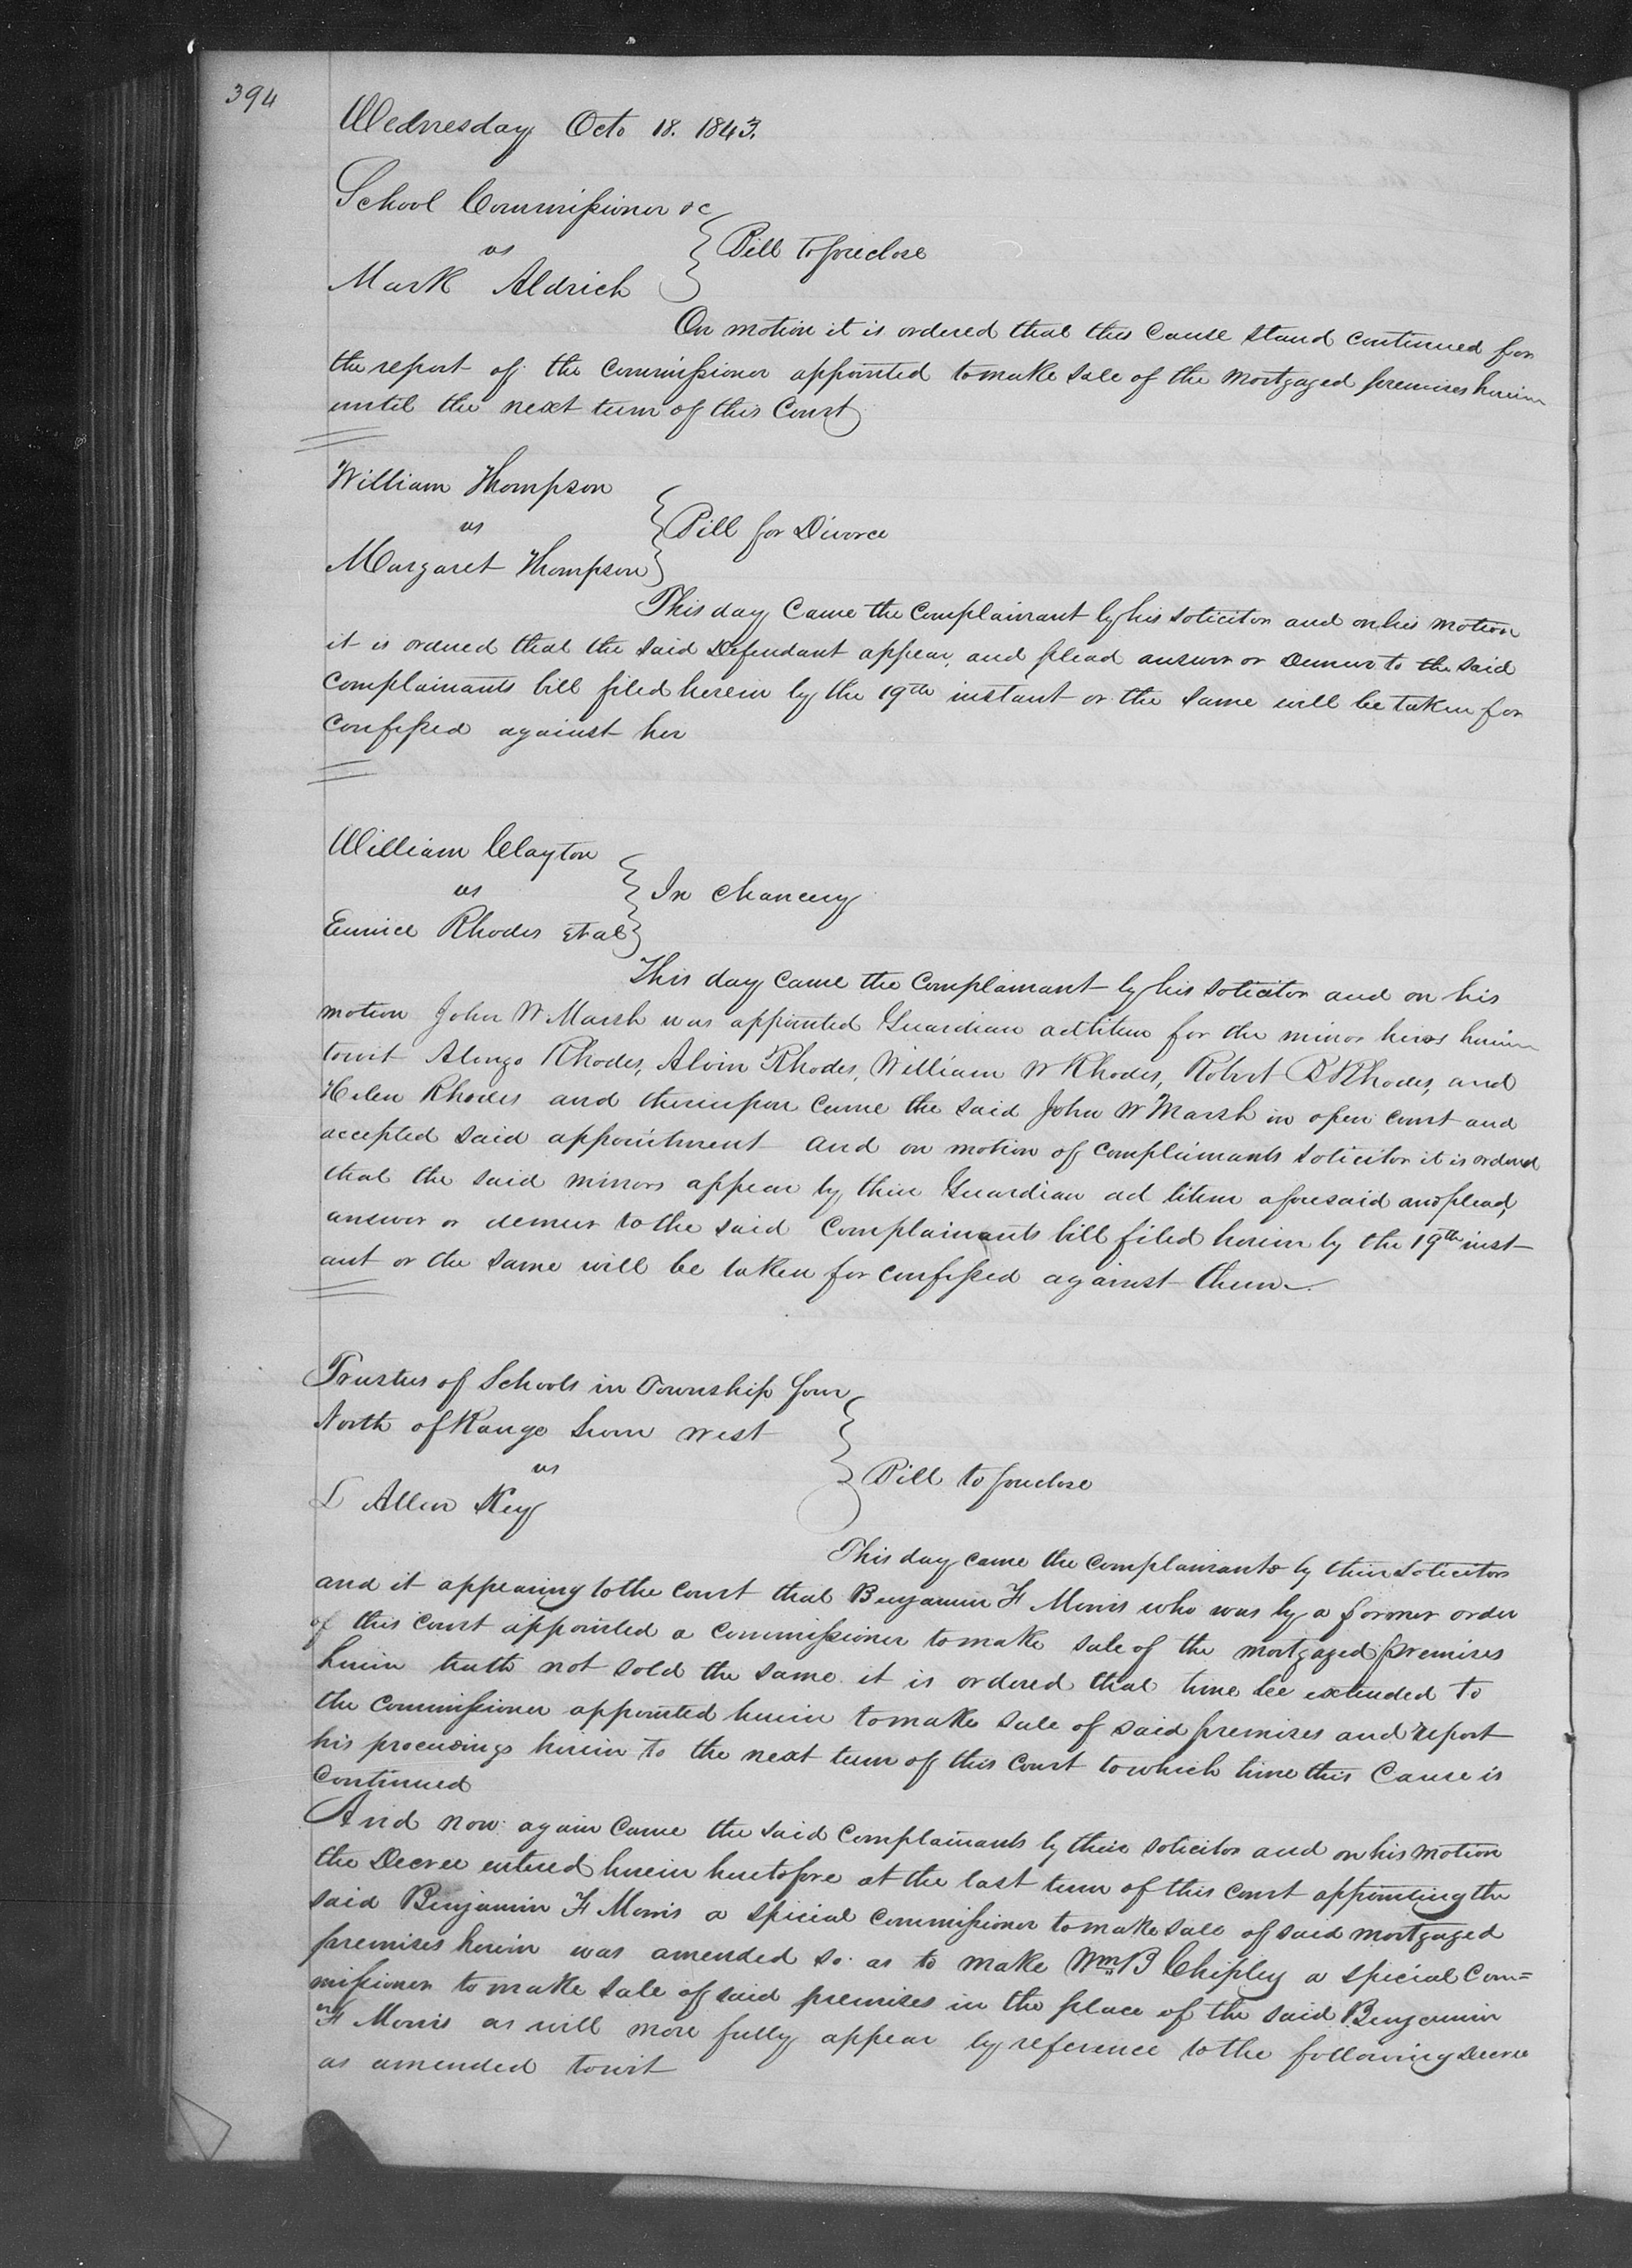 394
Wednesday Octo 18. 1843.
School Commissioner &c
vs
Mark Aldrich
Bill to foreclose
On motion it is ordered that this cause stand continued for
the report of the commissioner appointed to make sale of the mortgaged premises herein
until the next term of this Court
William Thompson
vs
Margaret Thompson
Bill for Divorce
This day came the complainant by his solicitor and on his motion
it is ordered that the said Defendant appear, and plead answer or Demur to the said
complainants bill filed herein by the 19th instant or the same will be taken for
confessed against her
William Clayton
vs
Eunice Rhodes et al
In chancery
This day came the complainant by his solicitor and on his
motion John W Marsh was appointed Guardian ad litem for the minor heirs herein
towit Alonzo Rhodes, Alvin Rhodes, William W Rhodes, Robert Rhodes, and
Helen Rhodes and thereupon came the said John W Marsh in open court and
accepted said appointment and on motion of complainants solicitor it is ordered
that the said minors appear by their Guardian ad litem aforesaid and plead,
answer or demur to the said complainants bill filed herein by the 19th inst-
ant or the same will be taken for confessed against them
Trustees of Schools in Township four
North of Range seven west
vs
L Allen Key
Bill to foreclose
This day came the complainants by their solicitors
and it appearing to the court that Benjamin F Morris who was by a former order
of this court appointed a commissioner to make sale of the mortgaged premises
herein hath not sold the same it is ordered that time be extended to
the commissioner appointed herein to make sale of said premises and report
his proceedings herein to the next term of this Court to which time this cause is
continued
And now again came the said complainants by their solicitor and on his motion
the Decree entered herein heretofore at the last term of this court appointing the
said Benjamin F Morris a special commissioner to make sale of said mortgaged
premises herein was amended so as to make Wm B Chipley a special Com=
missioner to make sale of said premises in the place of the said Benjamin
F Morris as will more fully appear by reference to the following Decree
as amended towit